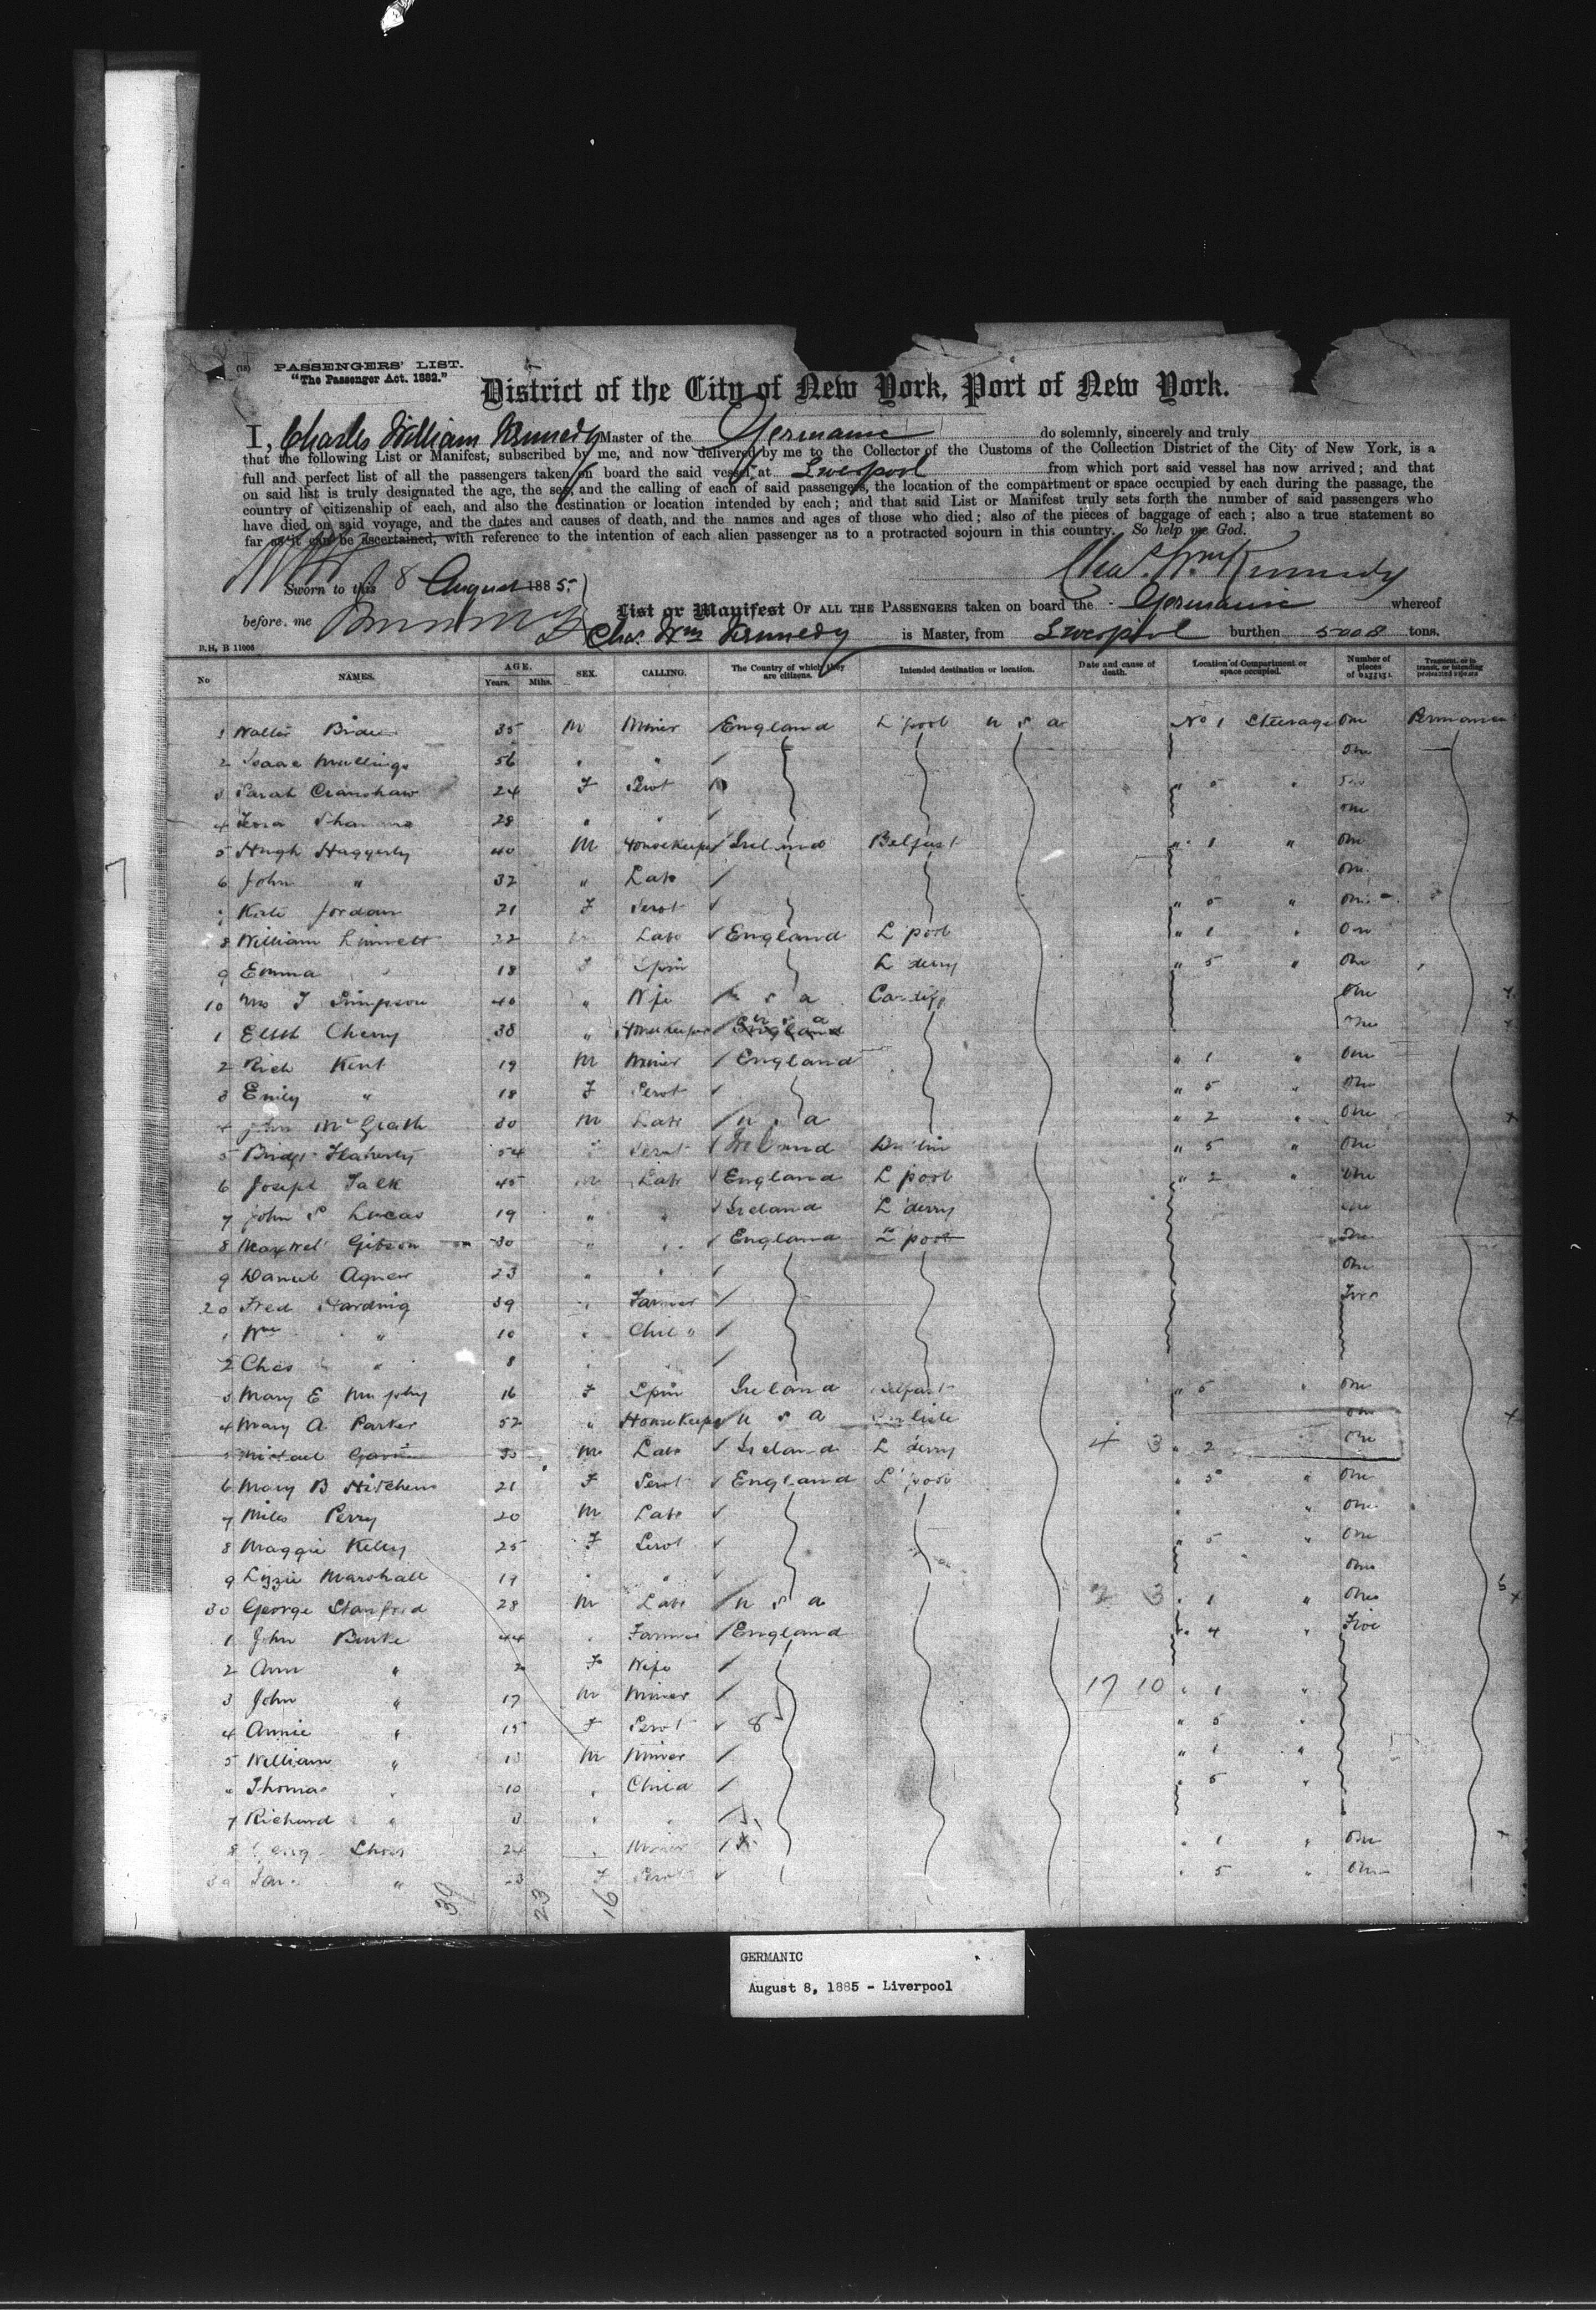 (18) PASSENGERS' LIST.
"The Passenger Act. 1882."
District of the City of New York, Port of New York.
I, Charles William Kennedy Master of the Germanic do solemnly, sincerely and truly
that the following List or Manifest, subscribed by me, and now delivered by me to the Collector of the Customs of the Collection District of the City of New York, is a
full and perfect list of all the passengers taken on board the said vessel at Liverpool from which port said vessel has now arrived; and that
on said list is truly designated the age, the sex, and the calling of each of said passengers, the location of the compartment or space occupied by each during the passage, the
country of citizenship of each, and also the destination or location intended by each; and that said List or Manifest truly sets forth the number of said passengers who
have died on said voyage, and the dates and causes of death, and the names and ages of those who died; also of the pieces of baggage of each; also a true statement so
far as it can be ascertained, with reference to the intention of each alien passenger as to a protracted sojourn in this country. So help me God.
Chas. Wm Kennedy
Sworn to this 8 August 1885
before me
List or Manifest OF ALL THE PASSENGERS taken on board the Germanic whereof
Chas. Wm Kennedy is Master, from Liverpool burthen 5008 tons.
R.H. B 11006
No NAMES. AGE. Years. Mths. SEX. CALLING. The Country of which they are citizens. Intended destination or location. Date and cause of death. Location of Compartment or space occupied. Number of pieces of baggage. Transient, or in transit, or intending protracted sojourn
1 Walter 35 M Miner England L'pool U S A No 1 Steerage One Permanent
2 Isaac Mullings 56 " " One
3 Sarah Cranshaw 24 F Servt " 5 "
4 28 " " One
5 Hugh Haggerty 40 M Housekeeper Ireland Belfast " 1 " One
6 John " 32 " Labr One
7 Kate Jordan 21 F Servt " 5 " One
8 William 22 Labr England L'pool " 1 " One
9 Emma 18 Spin L'derry " 5 " One
10 Mrs J Simpson 40 " Wife U S A Cardiff One
1 Elizth Cherry 38 " Housekeeper England U S A One
2 Rich Kent 19 M Miner England " 1 " One
3 Emily " 18 F Servt " 5 " One
4 John McGrath 30 M Labr U S A " 2 " One
5 Bridgt Flaherty 54 Servt Ireland Dublin " 5 " One
6 Joseph Talk 45 M Labr England L'pool " 2 " One
7 John S Lucas 19 " " Ireland L'derry One
8 Maxwell Gibson 30 " " England L'pool One
9 Daniel Agnew 23 " " One
20 Fred Harding 39 " Farmer
1 Wm " 10 " Child
2 Chas " 8 "
3 Mary E Murphy 16 F Spin Ireland Belfast " 5 " One
4 Mary A Parker 52 " Housekeeper U S A One
5 Michael 30 M Labr Ireland L'derry 4 3 " 2 One
6 Mary B Hitchens 21 F Servt England L'pool " 5 " One
7 Miles Perry 20 M Labr " " One
8 Maggie Kelly 25 F Servt " 5 " One
9 Lizzie Marshall 19 " " One
30 George Stanford 28 M Labr U S A 2 3 " 1 " One
1 John Burke 44 " Farmer England " 4 " Five
2 Ann " F Wife
3 John " 17 M Miner 17 10 " 1 "
4 Annie " 15 F Servt 8 " 5 "
5 William " 13 M Miner " 1 "
" Thomas " 10 " Child " 5 "
7 Richard " 3 " "
8 24 " Miner " 1 " One
" F Servt " 5 " One
39 23 16
GERMANIC
August 8, 1885 - Liverpool